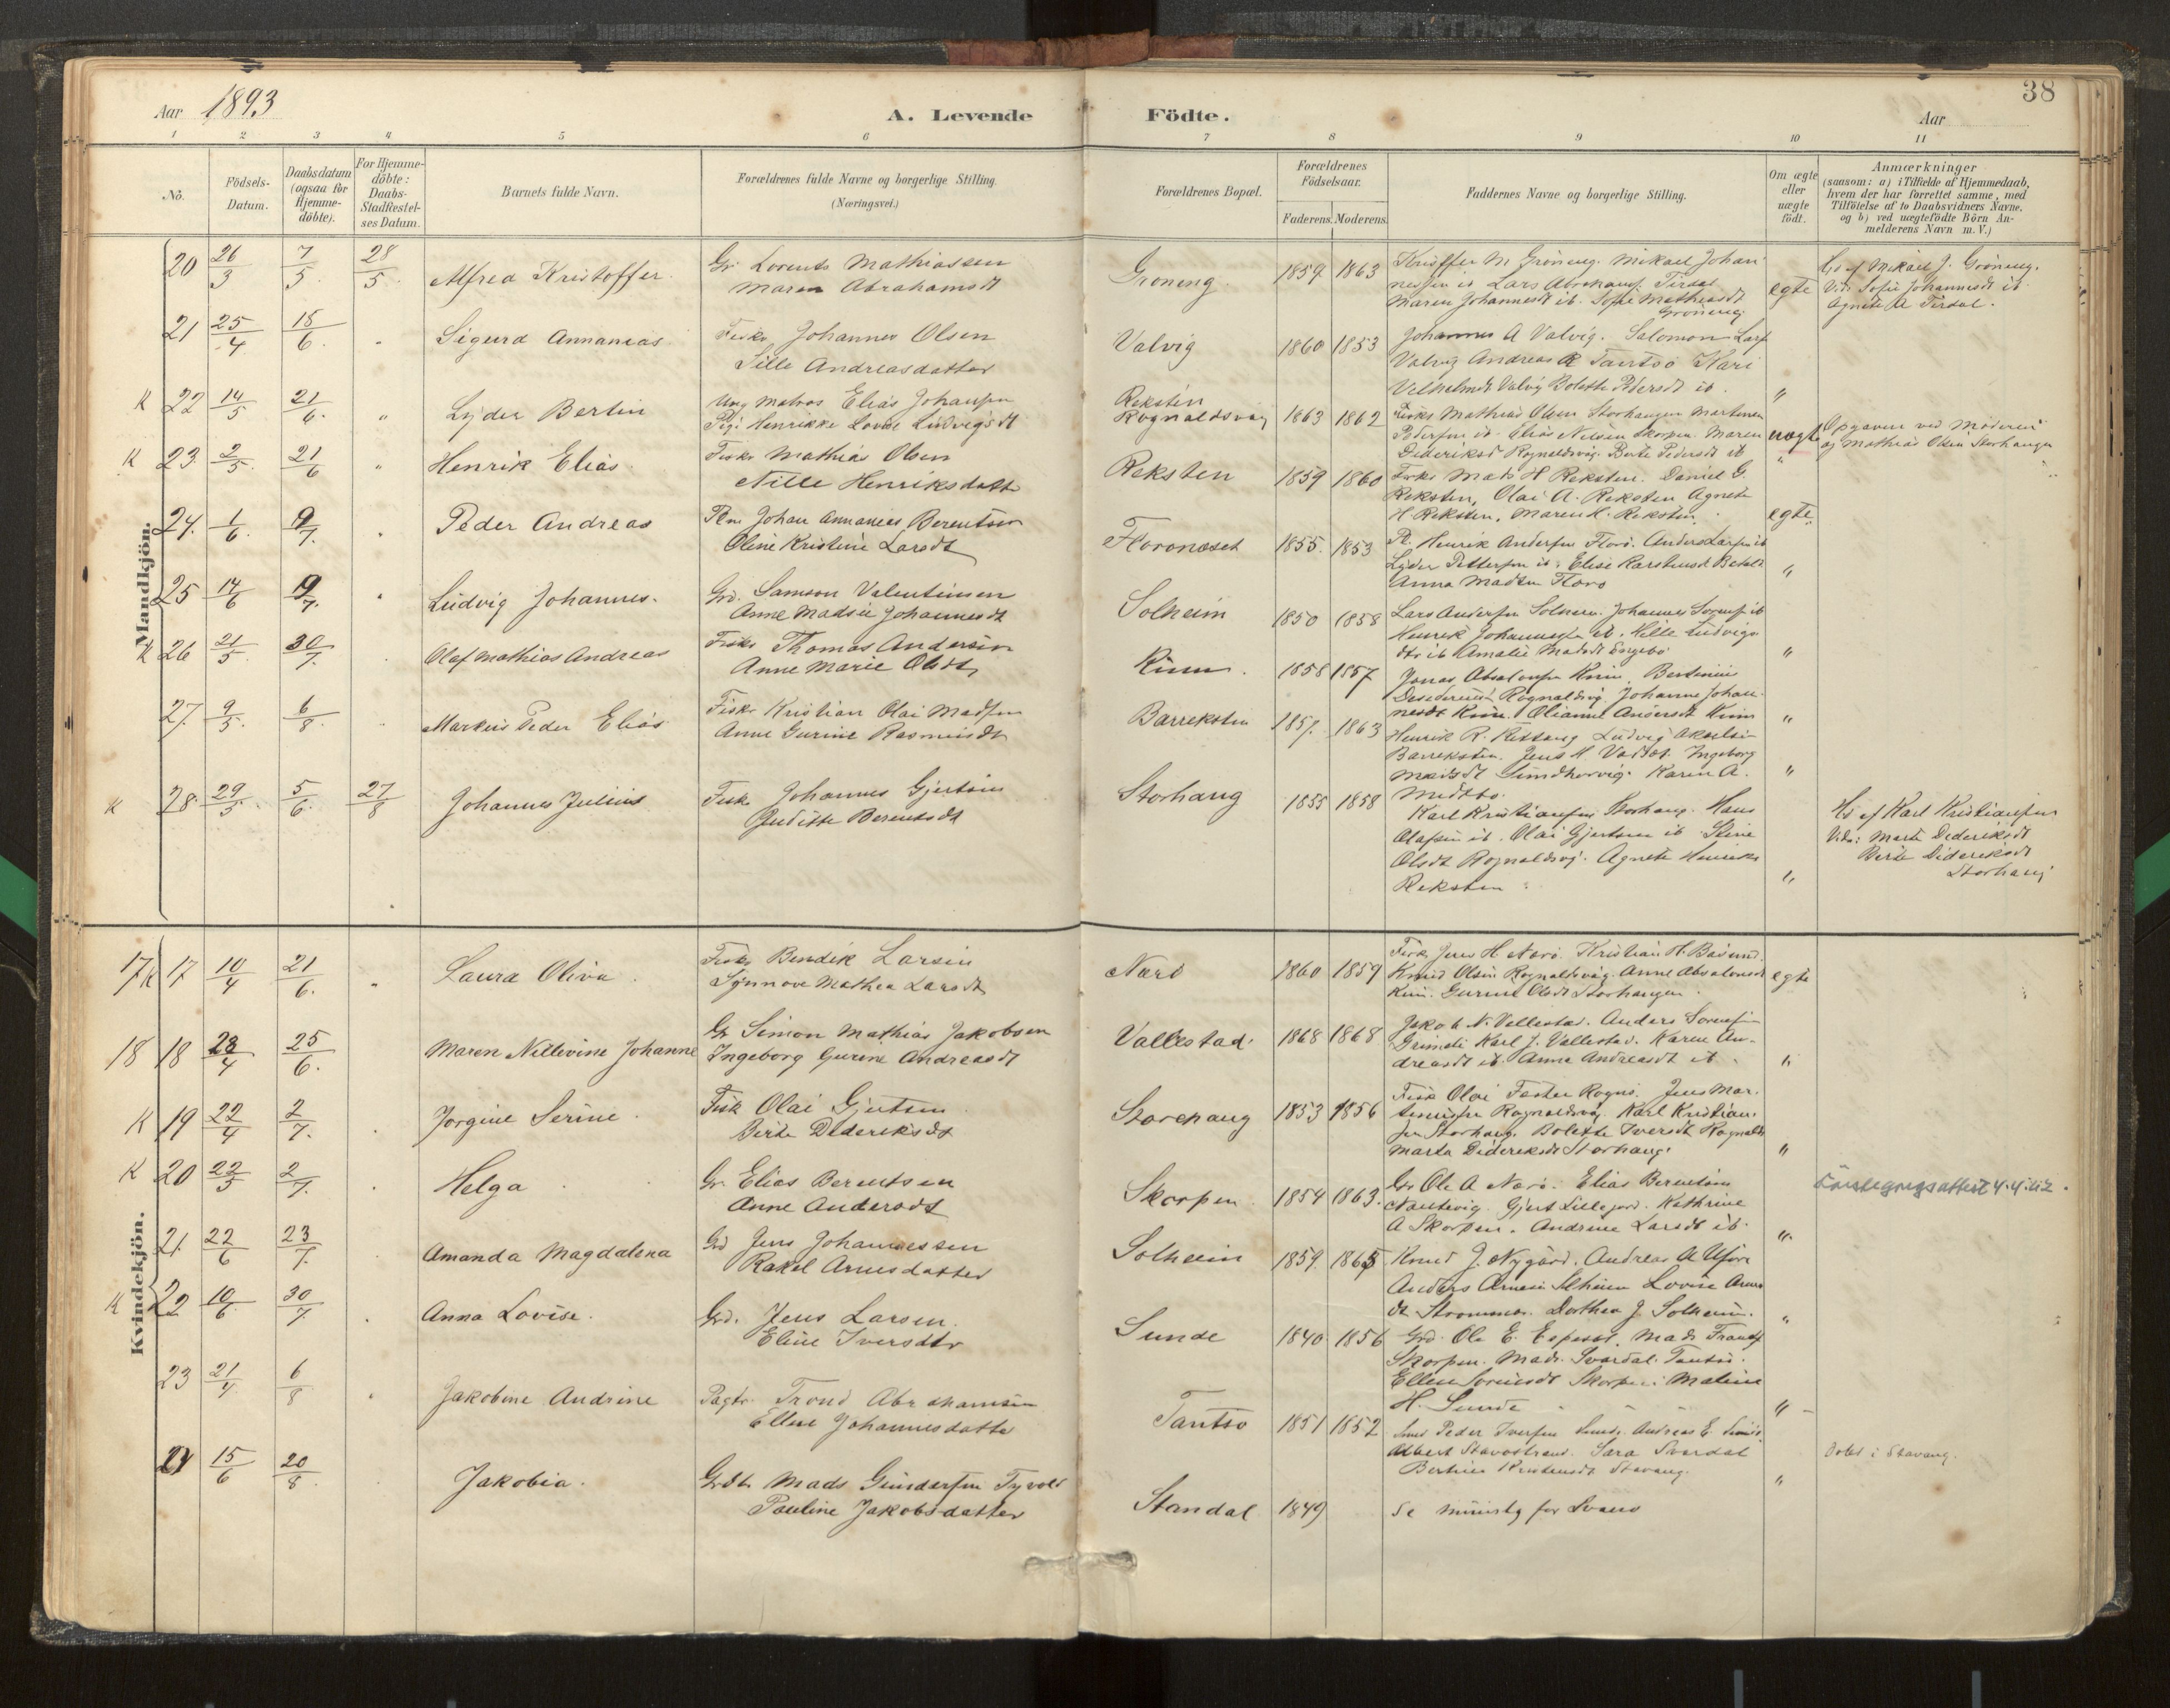 38
Aar 1893
A. Levende Födte.
Aar
1 2 3 4 5 6 7 8 9 10 11
No.
Födsels-Datum.
Daabsdatum (ogsaa for Hjemmedöbte).
For Hjemmedöbte: Daabs-Stadfestelses Datum.
Barnets fulde Navn.
Forældrenes fulde Navne og borgerlige Stilling. (Næringsvei.)
Forældrenes Bopæl.
Forældrenes Födselsaar.
Faderens. Moderens.
Faddernes Navne og borgerlige Stilling.
Om ægte eller uægte födt.
Anmærkninger (saasom: a) i Tilfælde af Hjemmedaab, hvem der har forrettet samme, med Tilföielse af to Daabsvidners Navne, og b) ved uægtefödte Börn Anmelderens Navn m. V.)
Mandkjön.
20 26/3 7/5 28/5 Alfred Kristoffer
Gr. Lorents Mathiassen
Maren Abrahamsdt
Groneng 1859 1863
Maren Johannesdt ib. Sofie Mathiasdt
Groneng
egte
Hj. af Mikael J. Gröneng.
Vid: Sofie Johannesdt ib
Agnete A Tirdal.
21 25/4 18/6 " Sigurd Annanias
Fisker Johannes Olsen
Sille Andreasdatter
Valvig 1860 1853
Johannes A Valvig. Salomon Lars
Valvig Andreas R Tantsö Kari
Vilhelmdt Valvig Bolette Pedersdt ib. "
K 22 14/5 21/6 " Lyder Bertin
Ung Matros Elias Johansen
Pige Henrikke Lovise Ludvigsdt
Reksten
Rognaldsvaag 1863 1862
Fisker Mathias Olsen Storhaugen Martinus
Pedersen ib. Elias Nilsen Skorpen. Maren
Dideriksd Rognaldsvag. Berte Pedersdt ib
uægte
Opgaven ved Moderen
og Mathias Olsen Storhaugen
K 23 2/5 21/6 " Henrik Elias
Fisker Mathias Olsen
Nille Henriksdatt
Reksten 1859 1860
Fisker Mads H Reksten. Daniel G.
Reksten, Olai A. Reksten Agnete
H. Reksten. Maren H. Reksten.
egte
24. 1/6 9/7. " Peder Andreas
Johan Annanias Berentsen
Oline Kristine Larsdt
Floronæset 1855. 1853
Henrik Andersen Florö. Anders Larsen ib
Lyder Pettersen ib. Elise
Anna Madsen Floro "
25 14/6 9/7. " Ludvig Johannes.
Grd. Samson Valentinsen
Anne Madsie Johannesdt
Solheim 1850 1858
Lars Andersen Solheim. Johannes Sorensen ib
Henrik Johannessen ib. Hille Ludvigs
dtr ib Amalie Madsdt Engebö "
K 26 21/5 30/7. Olaf Mathias Andreas
Fisker Thomas Andersen
Anne Marie Olsdt
Kinn. 1858 1857
Jonas Absalonsen Kinn, Bertinus
Rognaldsvag. Johanne Johan-
nesdt Kinn. Olianne Andersdt Kinn "
27. 9/5. 6/8. Markus Peder Elias
Fisker Kristian Olai Madsen
Anne Gurine Rasmusdt
Barreksten 1857. 1863
Henrik R. Ludvig
Barreksten. Jens M. Ingeborg
Madsdt Karen A. "
K 28 29/5. 5/6. 27/8 Johannes Julius
Fisk. Johannes Gjertsen
Juditte Berentsdt
Storhaug 1855 1858
Karl Kristiansen Storhaug. Hans
Olafsen ib. Olai Gjertsen ib Stine
Olsdt Rognaldsvg. Agnete Henriks
Reksten "
Hj. af Karl Kristiansen
Vidn: Marte Dideriksdt
Berte Dideriksdt
Storhaug
Kvindekjön.
17 K 17 10/4 21/6. " Laura Oliva.
Fisker Bendik Larsen
Synnove Mathea Larsdt
Narö 1860 1859
Fisk Jens H Narö. Kristian H. Basund.
Knud Olsen Rognaldsvag. Anne Absalonsdt
Kinn. Gurine Olsdt Storhaugen.
egte
18 18 23/4 25/6. Maren Nillevine Johanne
Gr Simon Mathias Jakobsen
Ingeborg Gurine Andreasdt
Vallestad. 1868 1868
Jakob N. Vellestad. Anders Sorensen
Grimeli Karl J. Vellestad. Karen An-
dreasdt ib. Anna Andreasdt ib. "
K 19 22/4 2/7. Jorgine Serine.
Fisk Olai Gjertsen
Berte Dideriksdt
Storehaug 1853 1856
Fisk Olai Jens Mar-
tinussen Rognaldsvag. Karl Kristian-
sen Storhaug. Bolette Iversdt Rognalds
Marta Dideriksdt Storhaug. "
K 20 22/5 2/7. Helga
Gr. Elias Berentsen
Anne Andersdt
Skorpen. 1854 1863.
Gr Ole A Narö. Elias Berentsen
Nautevig. Gjert Lillejord. Kathrine
A Skorpen. Andrine Larsdt ib. "
21. 22/6 23/7. Amanda Magdalena
Grd Jens Johannessen
Rakel Arnesdatter
Solheim 1859. 1865
Knud J. Nygård. Andreas A
Anders Arnesen Solheim Lovise Arnes
dt Strommen. Dorthea J Solheim. "
K 22 10/6. 30/7. Anna Lovise.
Grd. Jens Larsen.
Eline Iversdtr
Sunde 1840 1856
Grd. Ole E. Espeset. Mads Frants
Skorpen. Mads Svardal.
Ellen Sorensdt Skorpen. Maline
H. Sunde "
23 21/4 6/8 Jakobine Andrine
Trond Abrahamsen
Eline Johannesdatte
Tantsö 1851 1852
Peder Iversen Sunde. Andreas E.
Albert Stavostrand. Sara Svardal
Stavang. "
Döbt i Stavang.
24 15/6 20/8 Jakobia.
Mads Gundersen
Pauline Jakobsdatter
Standal 1849
Se minist for Svano